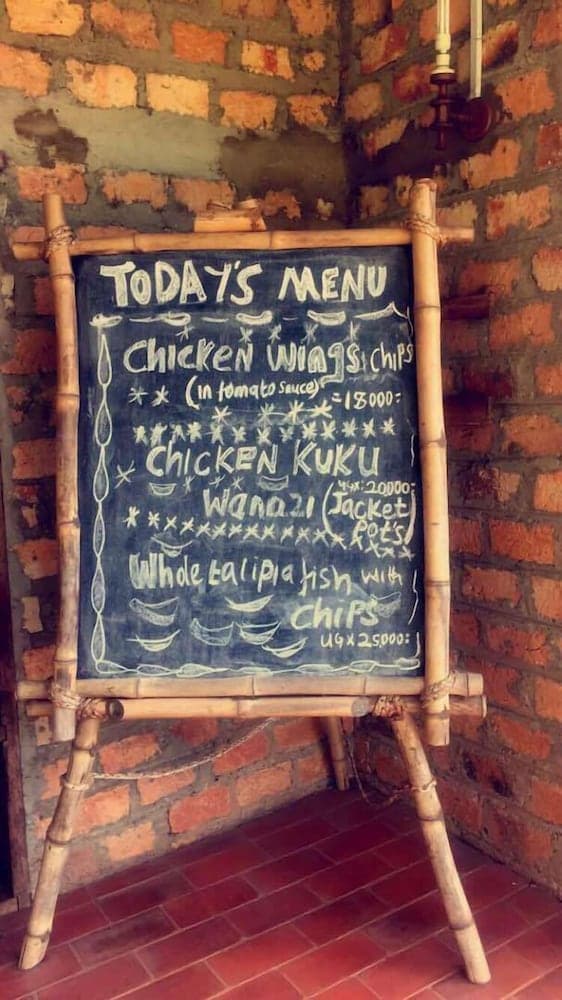 TODAY'S MENU
Chicken Wings chips
(in tomato sauce)
=18000=
CHICKEN KUKU
ugx: 20,000=
Wanazi (Jacket
Pot's)
Whole talipia fish with
CHIPS
UGX 25,000=